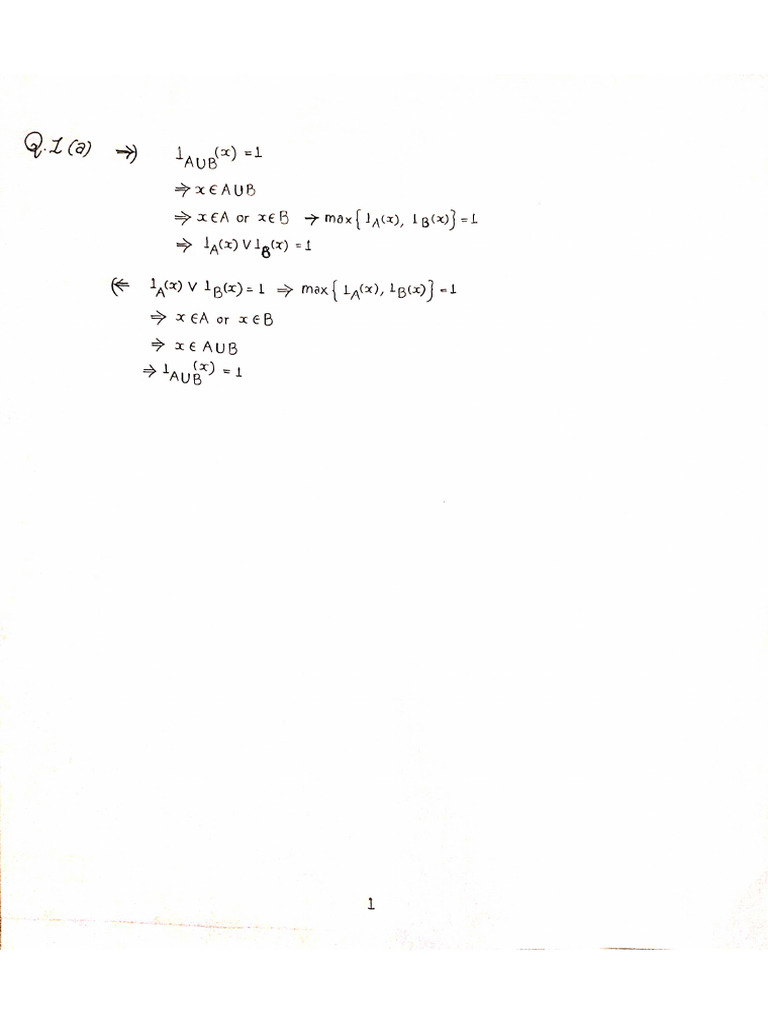 Q.1(a) →) 1_{A∪B}(x) = 1
⇒ x ∈ A∪B
⇒ x∈A or x∈B → max{1_A(x), 1_B(x)} = 1
⇒ 1_A(x) ∨ 1_B(x) = 1
(⇐ 1_A(x) ∨ 1_B(x) = 1 ⇒ max{1_A(x), 1_B(x)} = 1
⇒ x ∈A or x ∈B
⇒ x ∈ A∪B
⇒ 1_{A∪B}(x) = 1
1